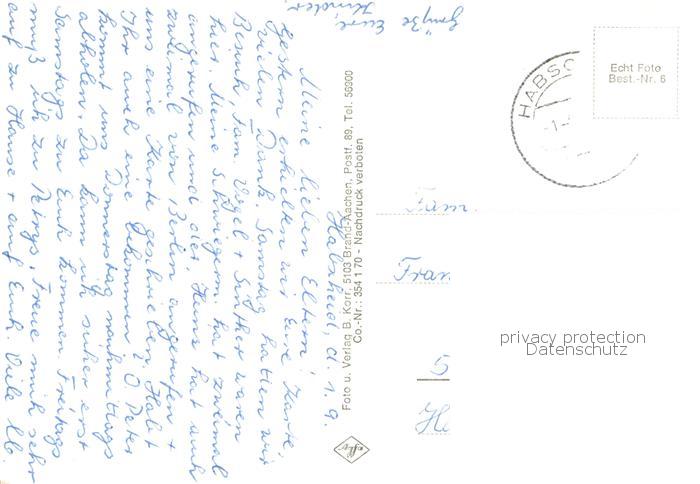 Habscheid, d. 1. 9.
Meine lieben Eltern!
Gestern erhielten wir Eure Karte.
Vielen Dank. Samstag hatten wir
Besuch, Fam. Vogel + Günther waren
hier. Meine Schwiegerm. hat zweimal
angerufen und der Hans hat auch
zweimal von Berlin angerufen +
uns eine Karte geschrieben. Habt
Ihr auch eine bekommen? O Peter
kommt uns Donnerstag nachmittags
abholen. Da kann ich sicher erst
Samstags zu Euch kommen. Freitags
muß ich zu Petrys. Freue mich sehr
auf zu Hause + auf Euch. Viele lb.
Grüße Eure
Kinder.
Foto u. Verlag B. Korr, 5103 Brand-Aachen, Postf. 89, Tel. 56900
Co.-Nr.: 354 1 70 - Nachdruck verboten
HABSC
Echt Foto
Best.-Nr. 6
Fam.
Fran
5
He
privacy protection
Datenschutz